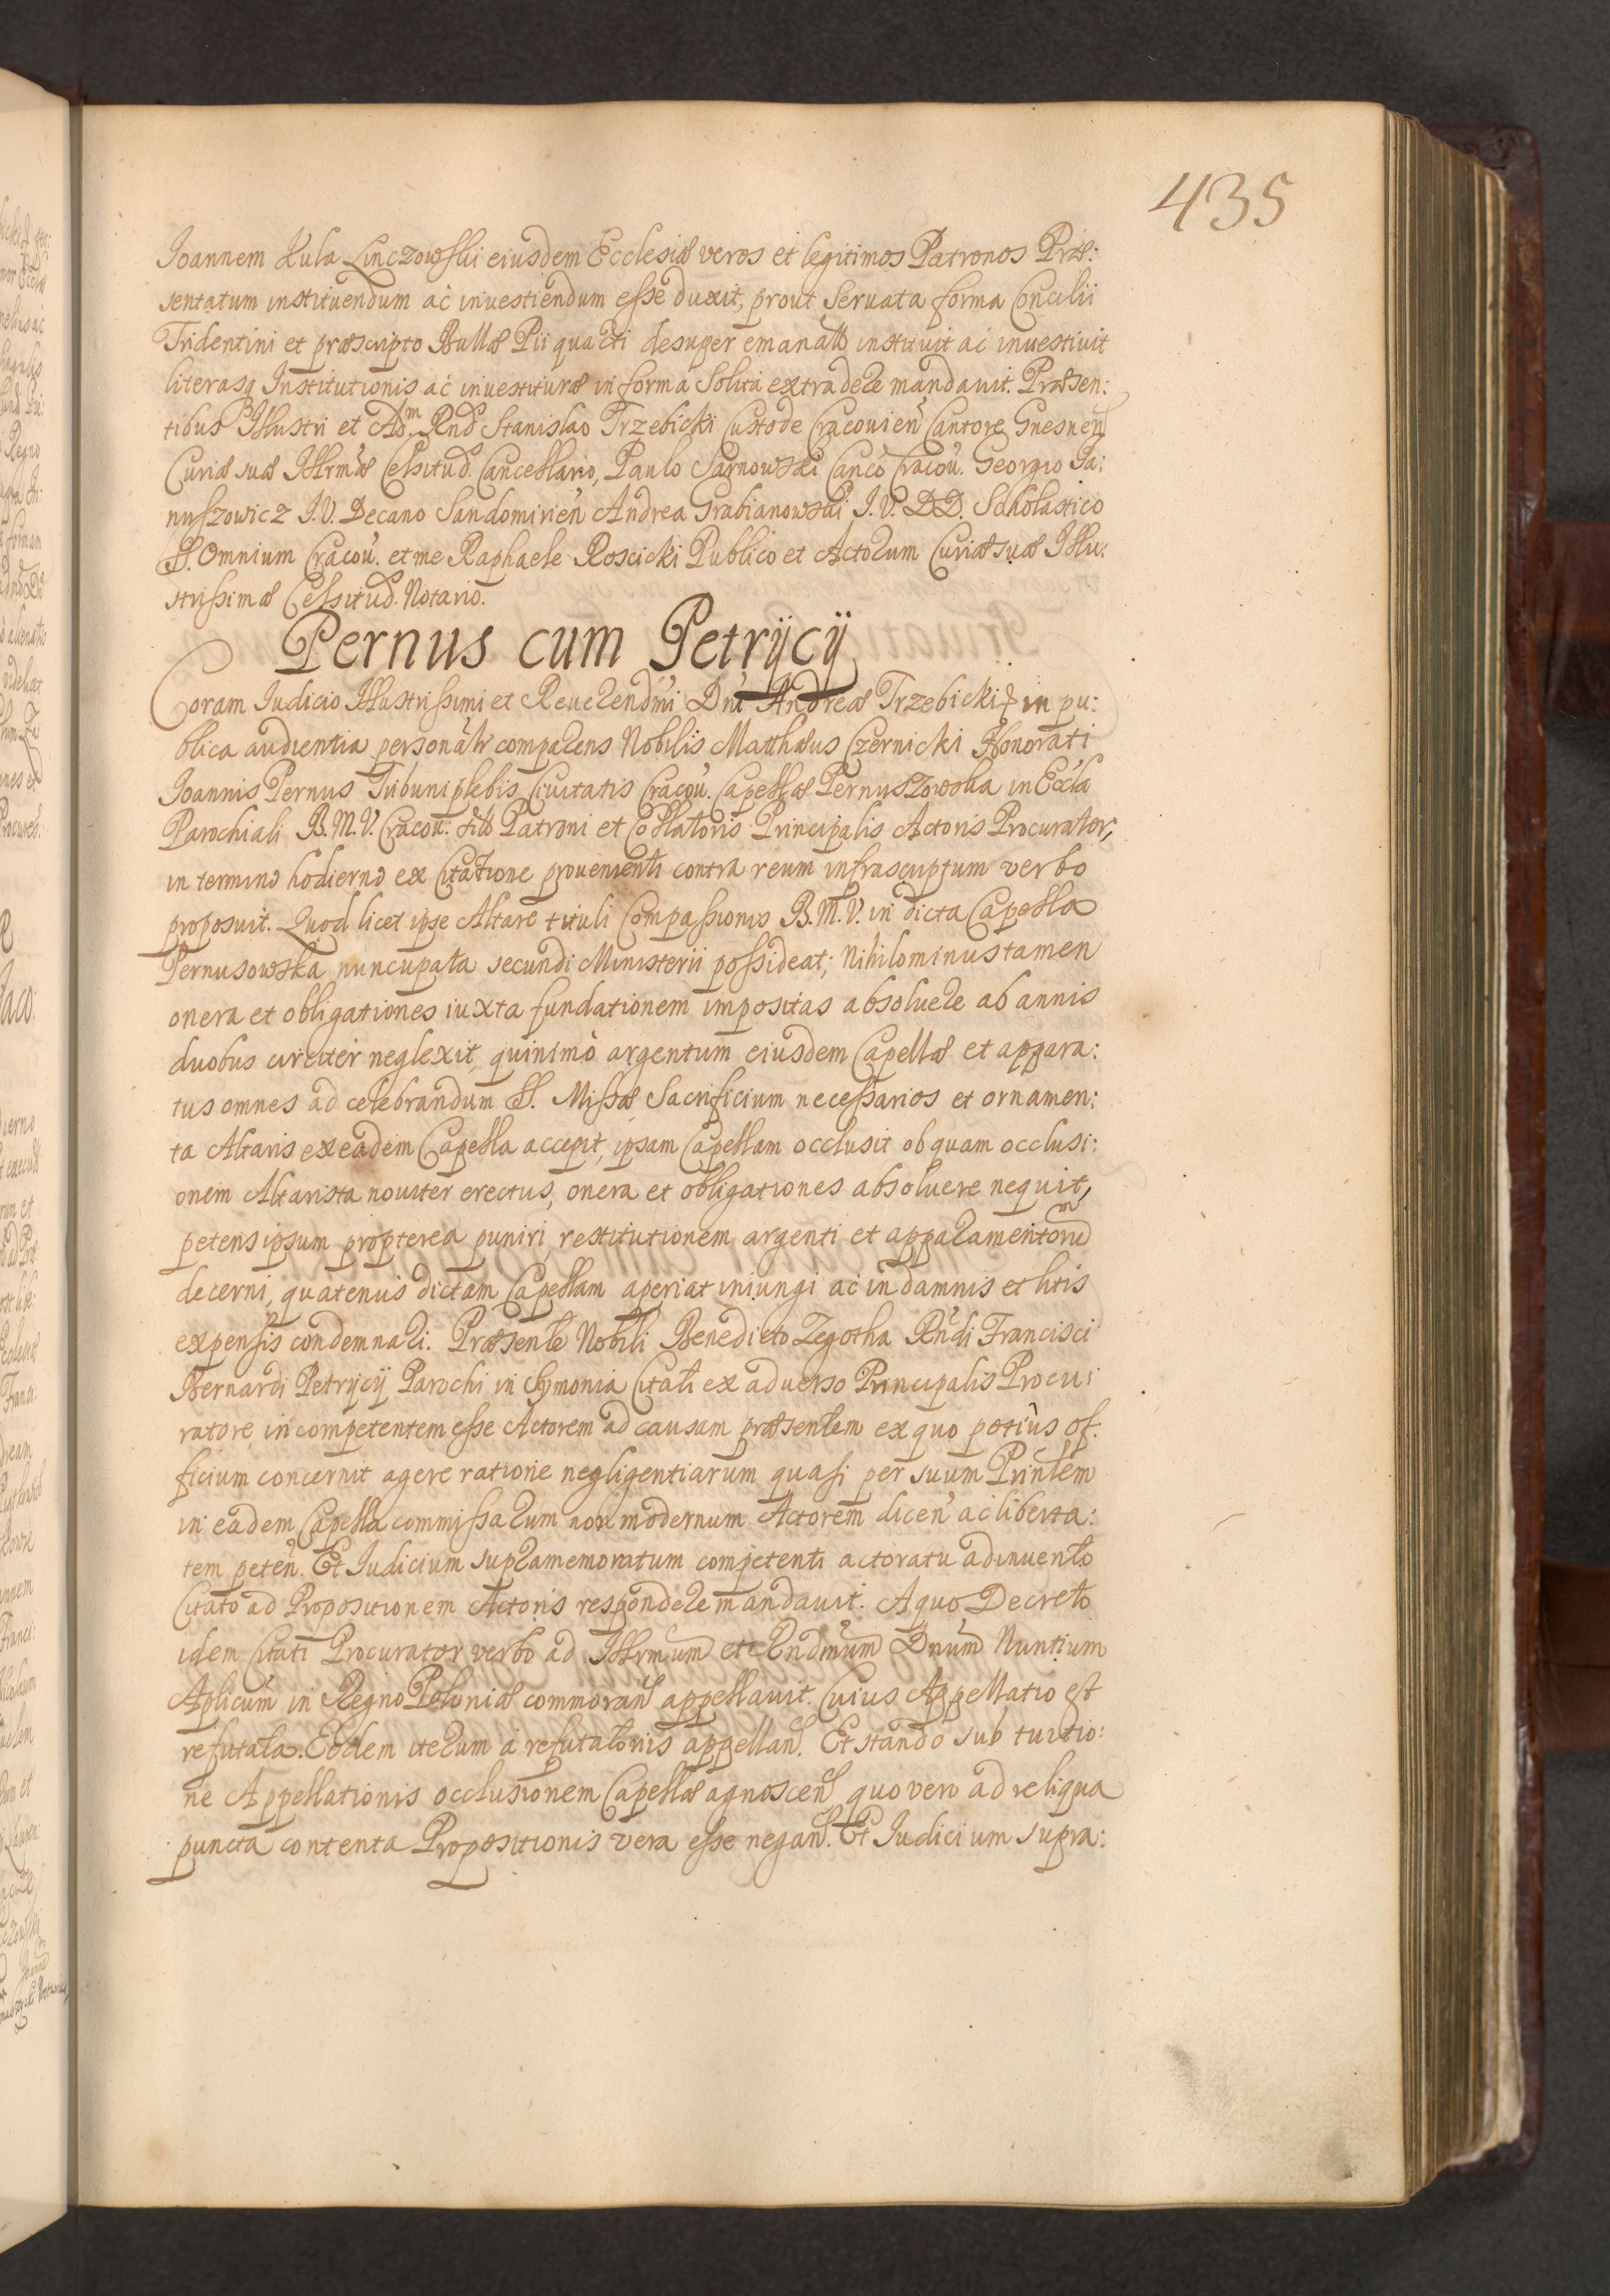 435
Ioannem Kula Linczowski eiusdem Ecclesiæ veros et legitimos Patronos Præ:
sentatum instituendum ac inuestiendum esse duxit, prout seruata forma Concilii
Tridentini et præscripto Bullæ Pii quarti desuper emanatæ instituit ac inuestiuit
literasq Institutionis ac inuestituræ in forma solita extradere mandauit. Præsen:
tibus Illustri et Adm. Rnd Stanislao Trzebicki Custode Cracouien Cantore Gnesnen
Curiæ suæ Illrmæ Celsitud. Cancellario, Paulo Sarnowski Canco Cracou. Georgio Ja:
nuszowicz J.V. Decano Sandomirien Andrea Grabianowski J.V. DD. Scholastico
SS. Omnium Cracou. et me Raphaele Roscicki Publico et Actorum Curiæ suæ Illu:
strissimæ Celsitud. Notario.
Pernus cum Petrÿcÿ
Coram Iudicio Illustrissimi et Reuerendmi Dni Andreæ Trzebicki & in pu:
blica audientia personalr comparens Nobilis Matthæus Czernicki Honorati
Ioannis Pernus Tribuni plebis Ciuitatis Cracou. Capellæ Pernuszowska in Eccla
Parochiali B.M.V. Cracou. sitæ Patroni et Collatoris Principalis Actoris Procurator,
in termino hodierno ex Citatione prouenienti contra reum infrascriptum verbo
proposuit. Quod licet ipse Altare tituli Compassionis B.M.V. in dicta Capella
Pernusowska nuncupata secundi Ministerii possideat; Nihilominus tamen
onera et obligationes iuxta fundationem impositas absoluere ab annis
duobus circiter neglexit, quinimò argentum eiusdem Capellæ et appara:
tus omnes ad celebrandum SS. Missæ Sacrificium necessarios et ornamen:
ta Altaris ex eadem Capella accepit, ipsam Capellam occlusit ob quam occlusi:
onem Altarista nouiter erectus, onera et obligationes absoluere nequit,
petens ipsum propterea puniri, restitutionem argenti et apparamentorum
decerni, quatenus dictam Capellam aperiat iniungi ac in damnis et litis
expensis condemnari. Præsente Nobili Benedicto Zegotha Rndi Francisci
Bernardi Petrÿcÿ Parochi in Symonia Citati ex aduerso Principalis Procu:
ratore, incompetentem esse Actorem ad causam præsentem ex quo potiùs of:
ficium concernit agere ratione negligentiarum quasi per suum Prinlem
in eadem Capella commissarum non modernum Actorem dicen ac liberta:
tem peten. Et Iudicium supramemoratum competenti actoratu adinuento
Citato ad Propositionem Actoris respondere mandauit. A quo Decreto
idem Citati Procurator verbo ad Illrmum et Rndmum Dnum Nuntium
Aplicum in Regno Poloniæ commoran appellauit. Cuius Appellatio est
refutata. Eodem iterum a refutatoriis appellan. Et stando sub tuitio:
ne Appellationis occlusionem Capellæ agnoscen quo vero ad reliqua
puncta contenta Propositionis vera esse negan. Et Iudicium supra: